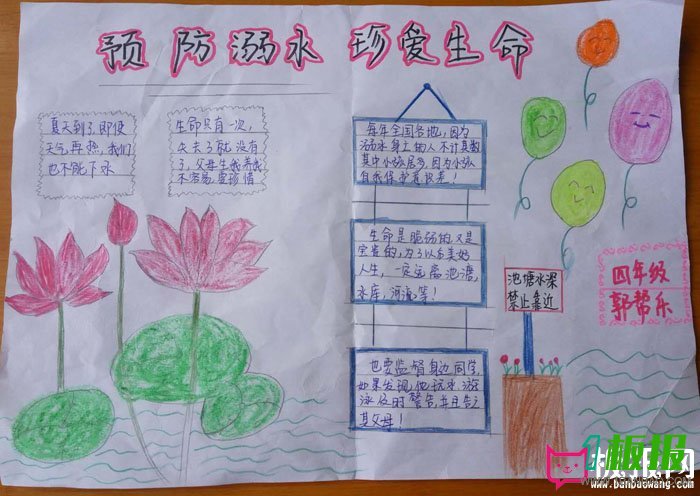 预防溺水 珍爱生命
夏天到了,即使
天气再热,我们
也不能下水
生命只有一次,
失去了就没有
了,父母生我养我
不容易,要珍惜
每年全国各地,因为
溺水身上的人不计其数
其中小孩居多,因为小孩
自我保护意识差!
生命是脆弱的,又是
宝贵的,为了以后美好
人生,一定远离池溏,
水库,河流等!
也要监督身边同学,
如果发现他玩水,游
泳及时警告,并且告之
其父母!
池塘水深
禁止靠近
四年级
郭帮乐
板报网
www.banbaowang.com